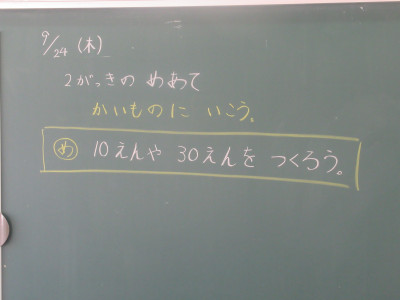 9/24(木)
2がっきの めあて
かいものに いこう。
め 10えんや 30えんを つくろう。